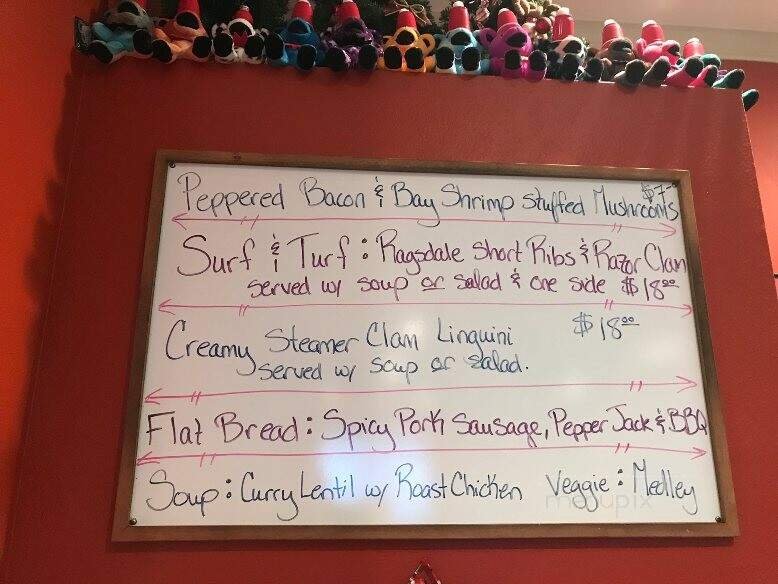 Peppered Bacon & Bay Shrimp Stuffed Mushrooms $7-
Surf & Turf : Ragsdale Short Ribs & Razor Clam
served w/ soup or salad & one side $18.00
Creamy Steamer Clam Linguini $18.00
served w/ soup or salad.
Flat Bread : Spicy Pork Sausage, Pepper Jack & BBQ
Soup : Curry Lentil w/ Roast Chicken Veggie : Medley
menupix